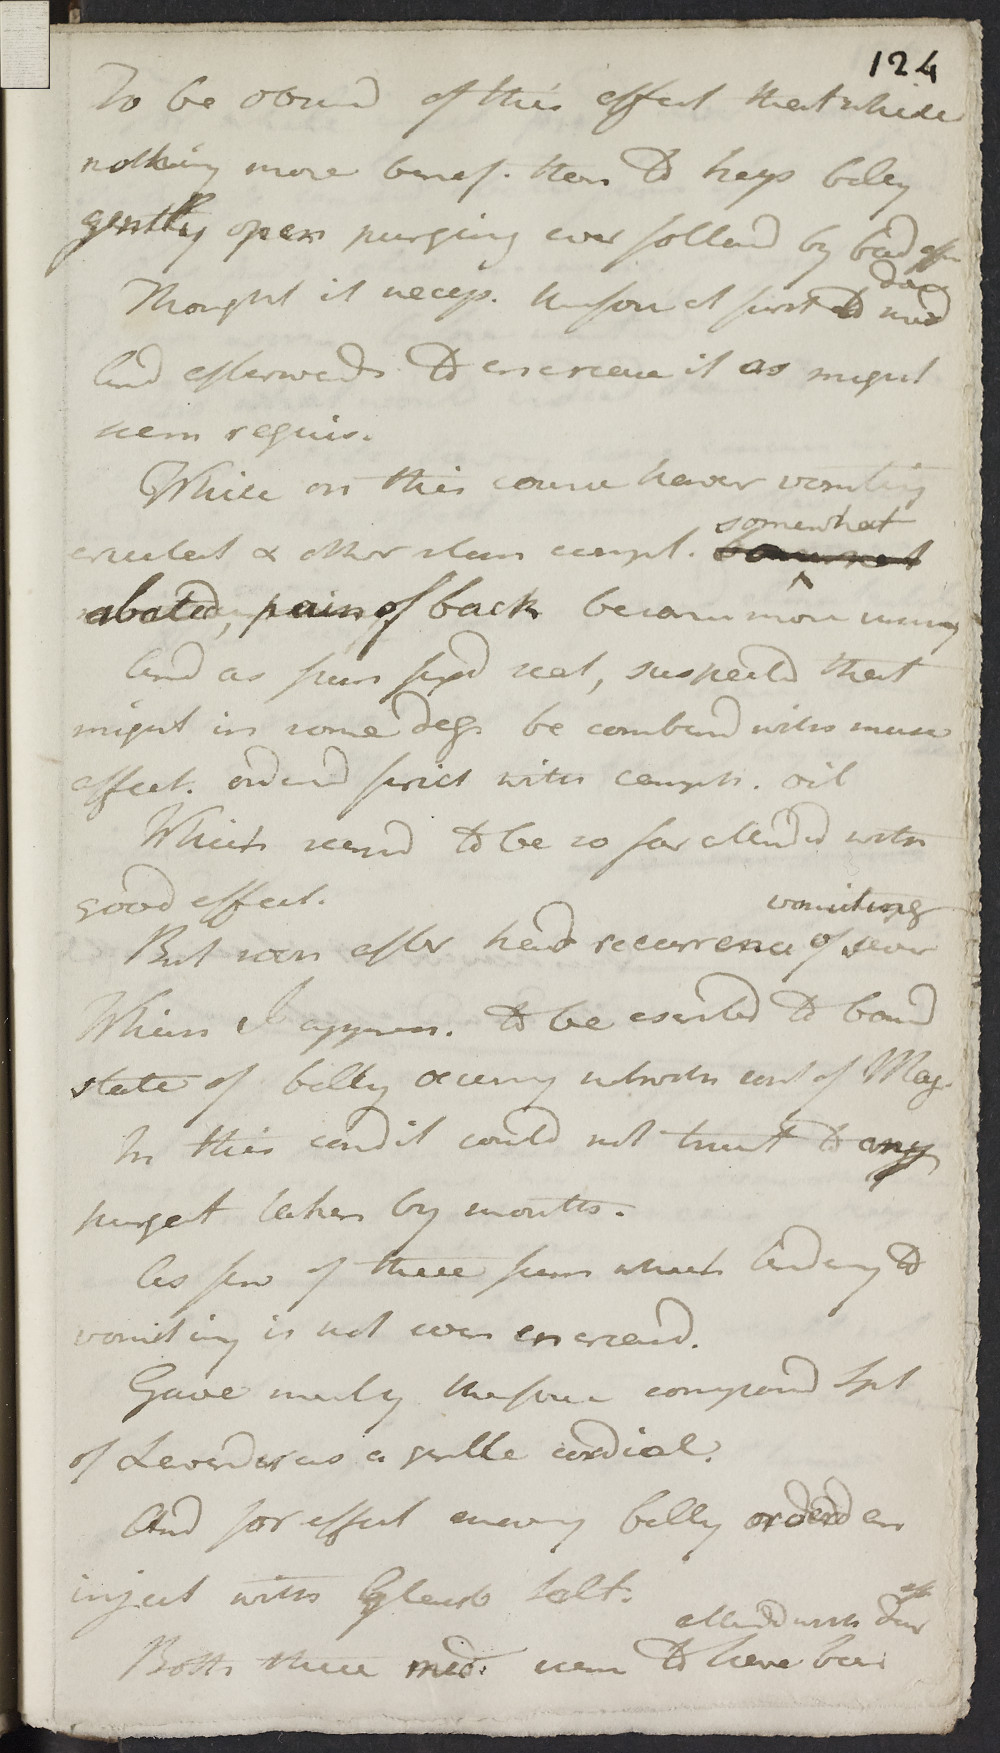 124
To be observd of this effect that while
nothing more benef. than to keep belly
gently open purging ever follownd by bad effe
dose
Thought it necess. therefore at first to mod
And afterwards to encrease it as might
seem requis.
While on this course however vomiting
somewhat
eructat & other stom compl.
abated, pain of back became more uneasy
And as from seat, suspected that
might in some deg be combind with musc
affect. orderd frict with camph. oil
Which seemd to be so far attended with
good effect.
vomiting
But soon after had recurrence of sever
Which I appren. to be ascribed to bound
state of belly occurring notwith use of Mag.
In this condit could not trust to any
purgat taken by mouth.
As few of these from which tendency to
vomiting is not even encreasd.
Gave merely therefore compound Spt
of Lavender as a gentle cordial.
And for effect emptying belly orderd an
inject with Glaub Salt.
eff
attended with due
Both these med. seem to have been